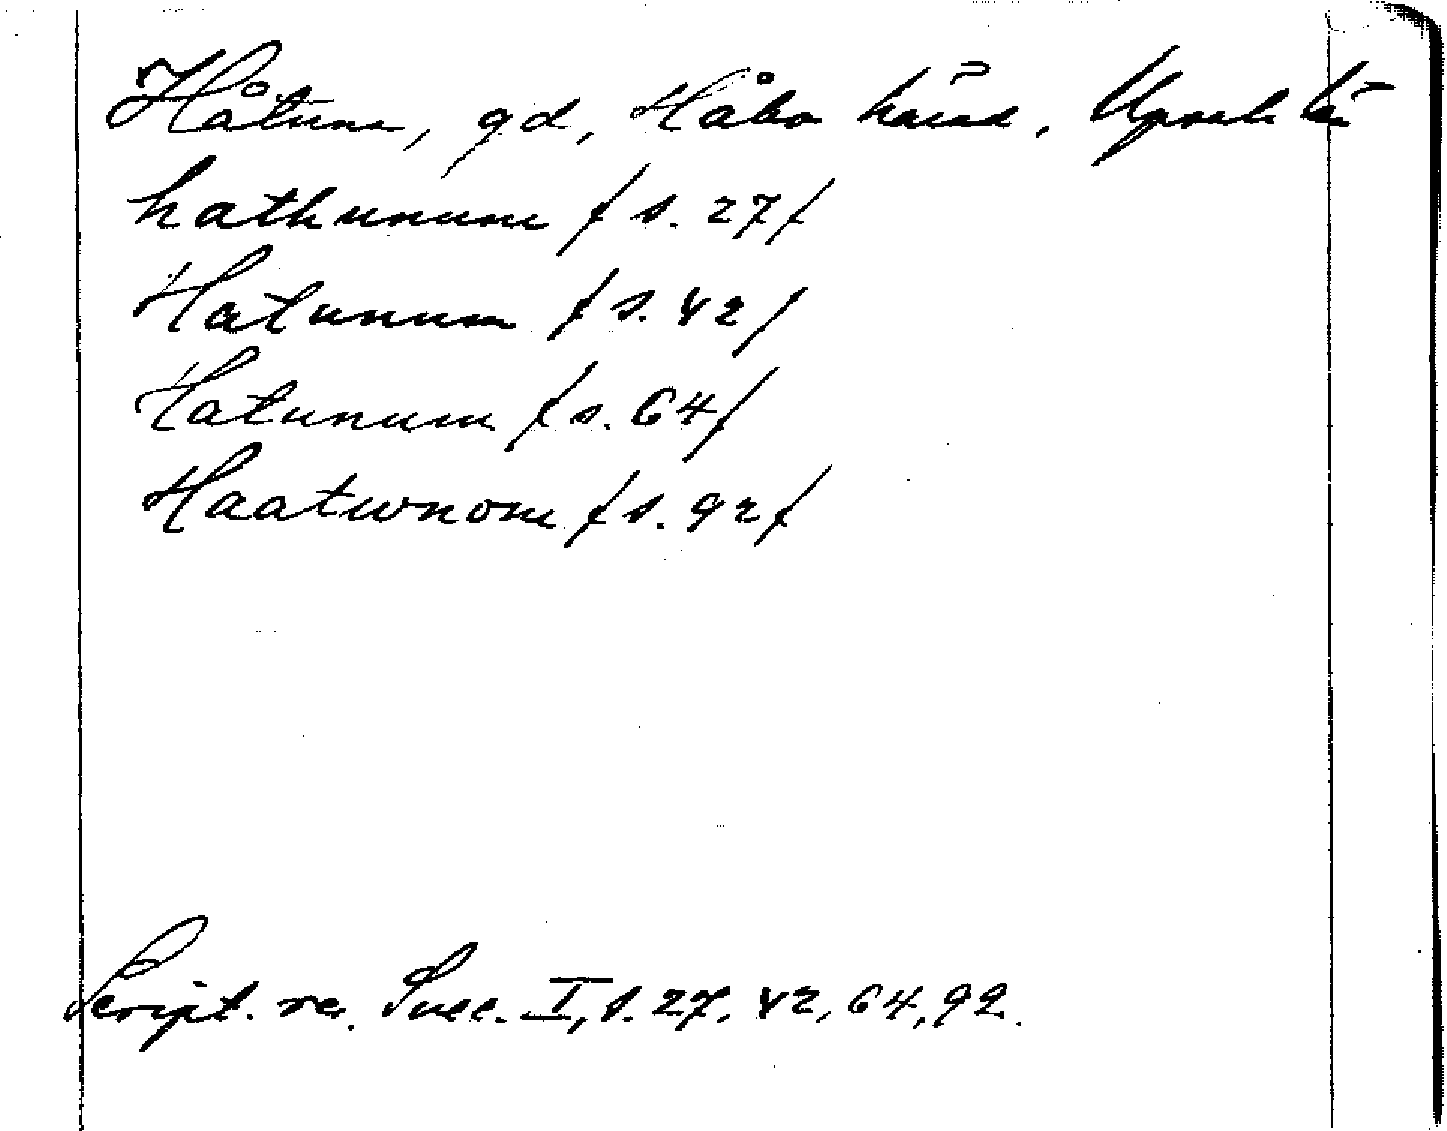 Håtuna, gd, Håbo härad, Upsala län
hathunum /s. 27/
Hatunum /s. 42/
Hatunum /s. 64/
Haatwnom /s. 92/
Script. rer. Suec. I, s. 27, 42, 64, 92.